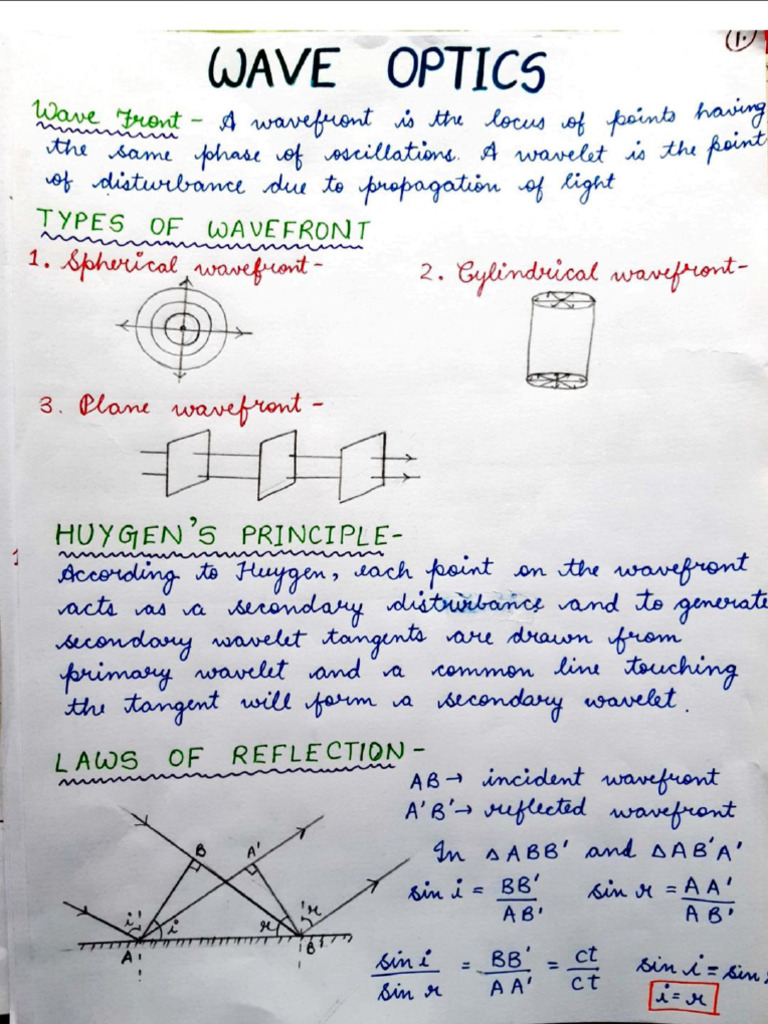 1.
WAVE OPTICS
Wave Front - A wavefront is the locus of points having
the same phase of oscillations. A wavelet is the point
of disturbance due to propagation of light
TYPES OF WAVEFRONT
1. Spherical wavefront-
2. Cylindrical wavefront-
3. Plane wavefront-
HUYGEN'S PRINCIPLE-
According to Huygen, each point on the wavefront
acts as a secondary disturbance and to generate
secondary wavelet tangents are drawn from
primary wavelet and a common line touching
the tangent will form a secondary wavelet.
LAWS OF REFLECTION-
AB → incident wavefront
A'B' → reflected wavefront
In △ABB' and △AB'A'
sin i = BB'/AB' sin r = AA'/AB'
sin i/sin r = BB'/AA' = ct/ct sin i = sin
i = r
B A'
i i r r
A B'